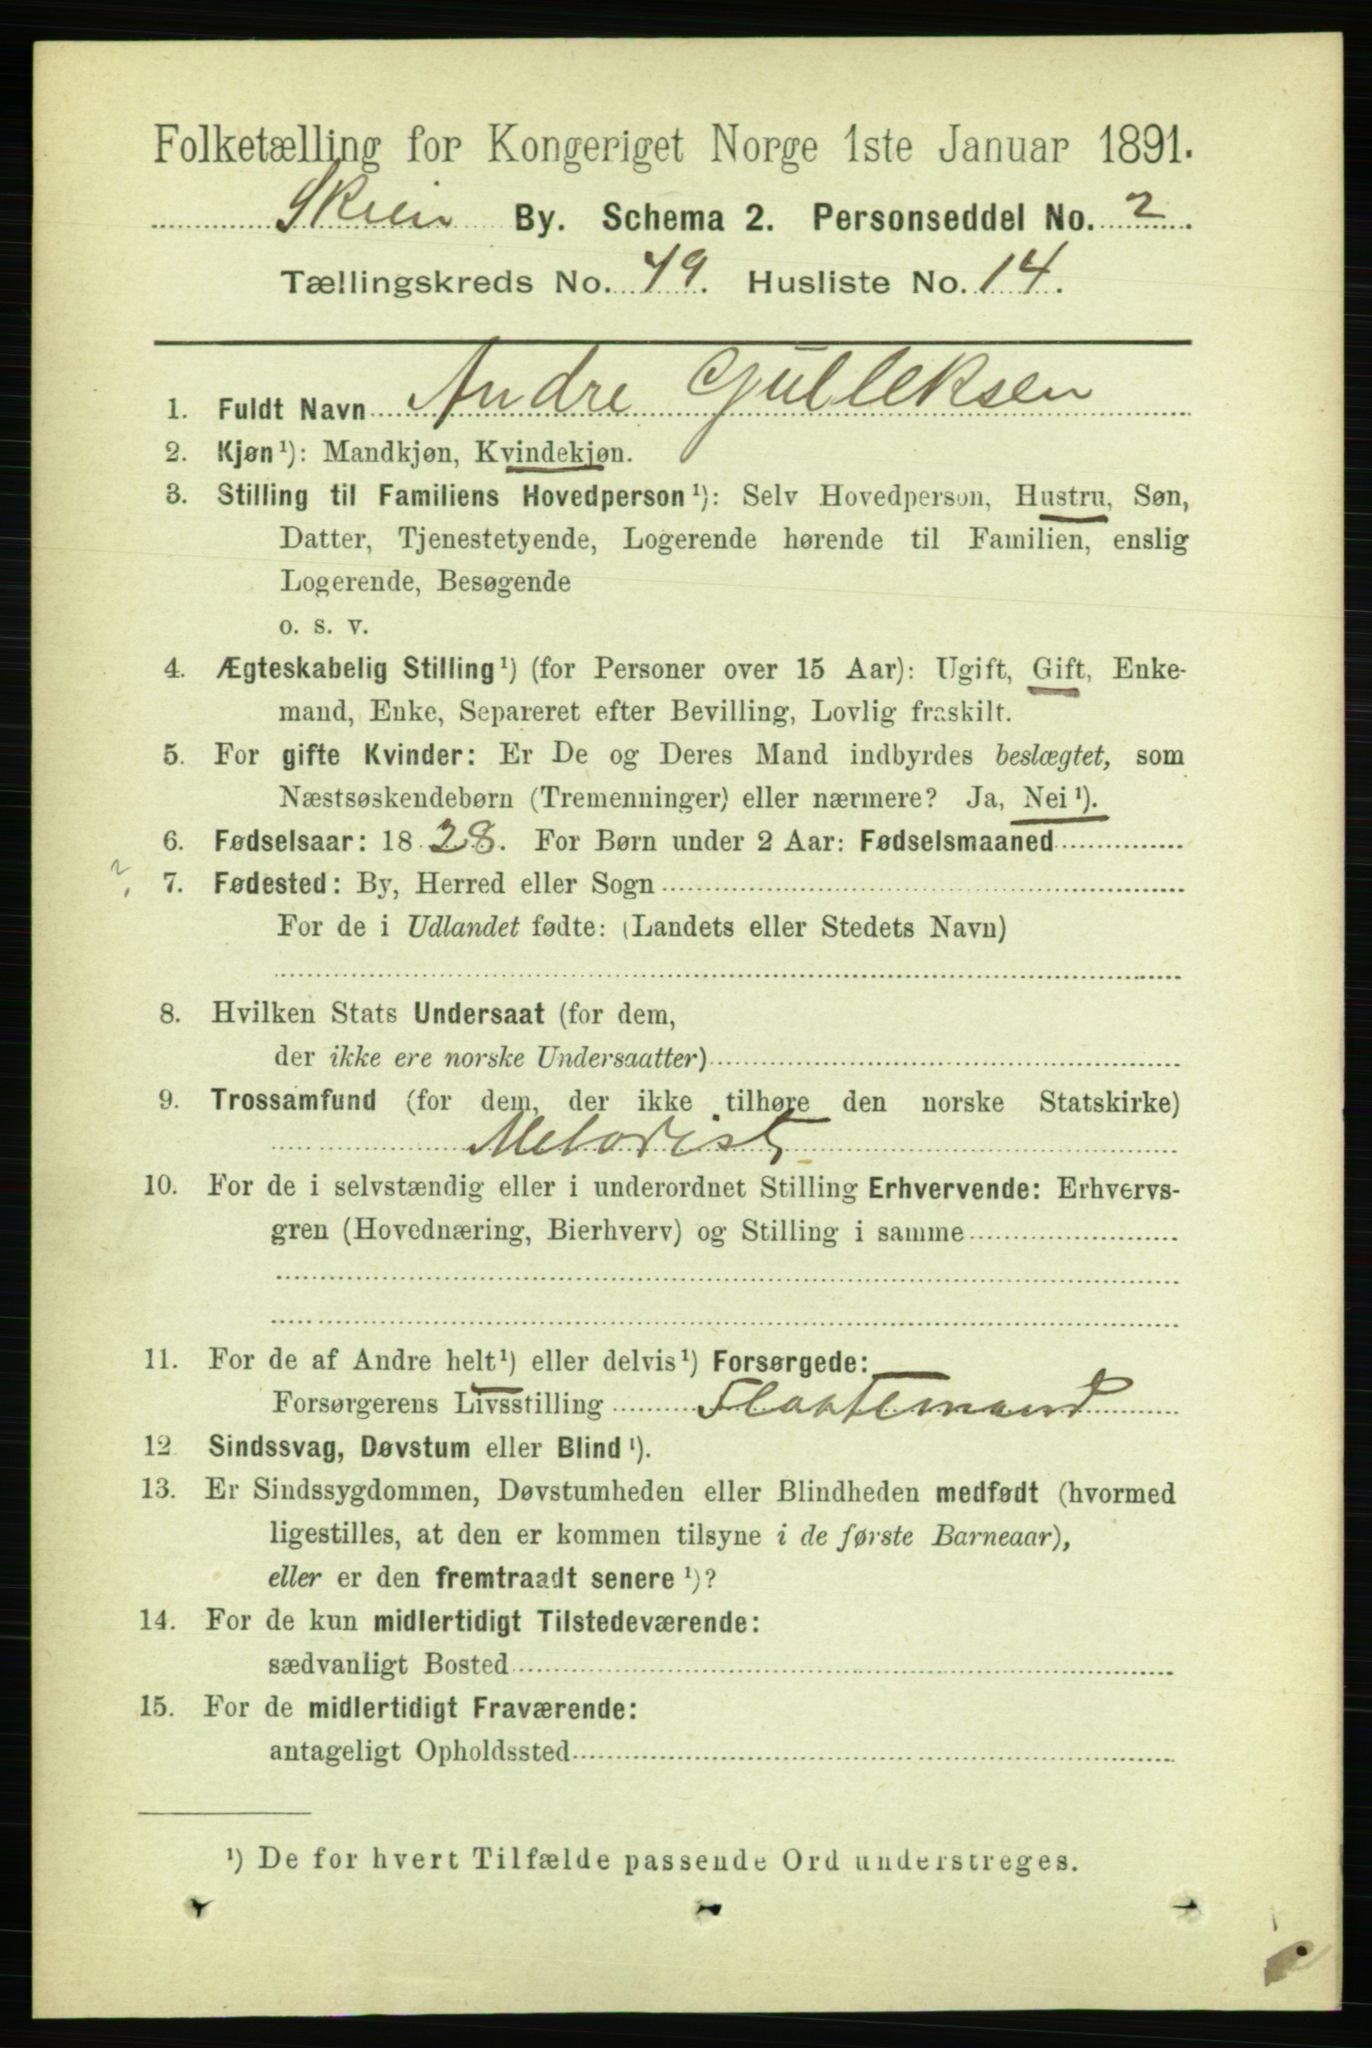 Folketælling for Kongeriget Norge 1ste Januar 1891.
Skien By. Schema 2. Personseddel No. 2.
Tællingskreds No. 49. Husliste No. 14.
1. Fuldt Navn Andre Gulleksen
2. Kjøn¹): Mandkjøn, Kvindekjøn.
3. Stilling til Familiens Hovedperson¹): Selv Hovedperson, Hustru, Søn,
Datter, Tjenestetyende, Logerende hørende til Familien, enslig
Logerende, Besøgende
o. s. v.
4. Ægteskabelig Stilling¹) (for Personer over 15 Aar): Ugift, Gift, Enke-
mand, Enke, Separeret efter Bevilling, Lovlig fraskilt.
5. For gifte Kvinder: Er De og Deres Mand indbyrdes beslægtet, som
Næstsøskendebørn (Tremenninger) eller nærmere? Ja, Nei¹).
6. Fødselsaar: 1828. For Børn under 2 Aar: Fødselsmaaned
7. Fødested: By, Herred eller Sogn
For de i Udlandet fødte: (Landets eller Stedets Navn)
8. Hvilken Stats Undersaat (for dem,
der ikke ere norske Undersaatter)
9. Trossamfund (for dem, der ikke tilhøre den norske Statskirke)
Metodist
10. For de i selvstændig eller i underordnet Stilling Erhvervende: Erhvervs-
gren (Hovednæring, Bierhverv) og Stilling i samme
11. For de af Andre helt¹) eller delvis¹) Forsørgede:
Forsørgerens Livsstilling Flaatemand
12 Sindssvag, Døvstum eller Blind¹).
13. Er Sindssygdommen, Døvstumheden eller Blindheden medfødt (hvormed
ligestilles, at den er kommen tilsyne i de første Barneaar),
eller er den fremtraadt senere¹)?
14. For de kun midlertidigt Tilstedeværende:
sædvanligt Bosted
15. For de midlertidigt Fraværende:
antageligt Opholdssted
¹) De for hvert Tilfælde passende Ord understreges.